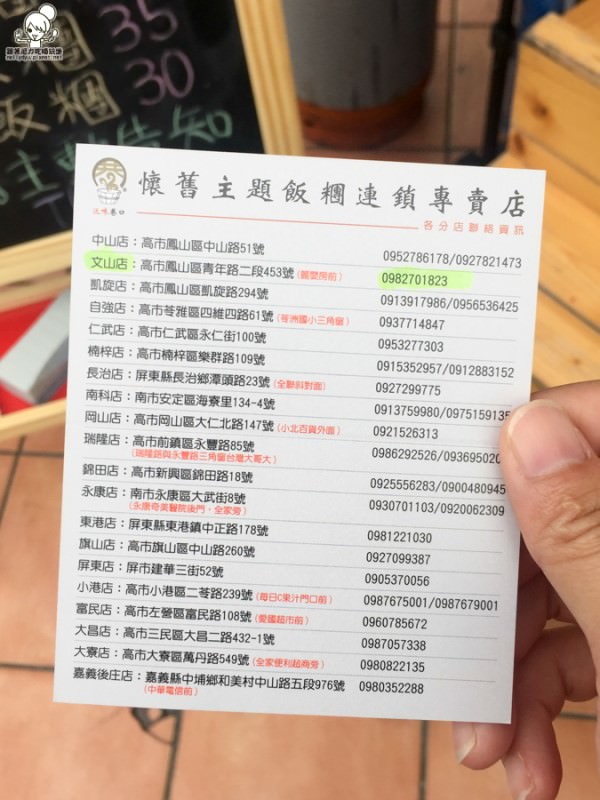 跟著尼力吃喝玩樂
nellydyu.pixnet.net
35
飯糰 30
主動告知
懷舊主題飯糰連鎖專賣店
汣味巷口
各分店聯絡資訊
中山店：高市鳳山區中山路51號 0952786178/0927821473
文山店：高市鳳山區青年路二段453號(舊墾房前) 0982701823
凱旋店：高市鳳山區凱旋路294號 0913917986/0956536425
自強店：高市苓雅區四維四路61號(苓洲國小三角窗) 0937714847
仁武店：高市仁武區永仁街100號 0953277303
楠梓店：高市楠梓區樂群路109號 0915352957/0912883152
長治店：屏東縣長治鄉潭頭路23號(全聯斜對面) 0927299775
南科店：南市安定區海寮里134-4號 0913759980/0975159135
岡山店：高市岡山區大仁北路147號(小北百貨外面) 0921526313
瑞隆店：高市前鎮區永豐路85號 0986292526/093695020
(瑞隆路與永豐路三角窗台灣大哥大)
錦田店：高市新興區錦田路18號 0925556283/0900480945
永康店：南市永康區大武街8號 0930701103/0920062309
(永康奇美醫院後門、全家旁)
東港店：屏東縣東港鎮中正路178號 0981221030
旗山店：高市旗山區中山路260號 0927099387
屏東店：屏市建華三街52號 0905370056
小港店：高市小港區二苓路239號(每日C果汁門口前) 0987675001/0987679001
富民店：高市左營區富民路108號(愛國超市前) 0960785672
大昌店：高市三民區大昌二路432-1號 0987057338
大寮店：高市大寮區萬丹路549號(全家便利超商旁) 0980822135
嘉義後庄店：嘉義縣中埔鄉和美村中山路五段976號 0980352288
(中華電信前)